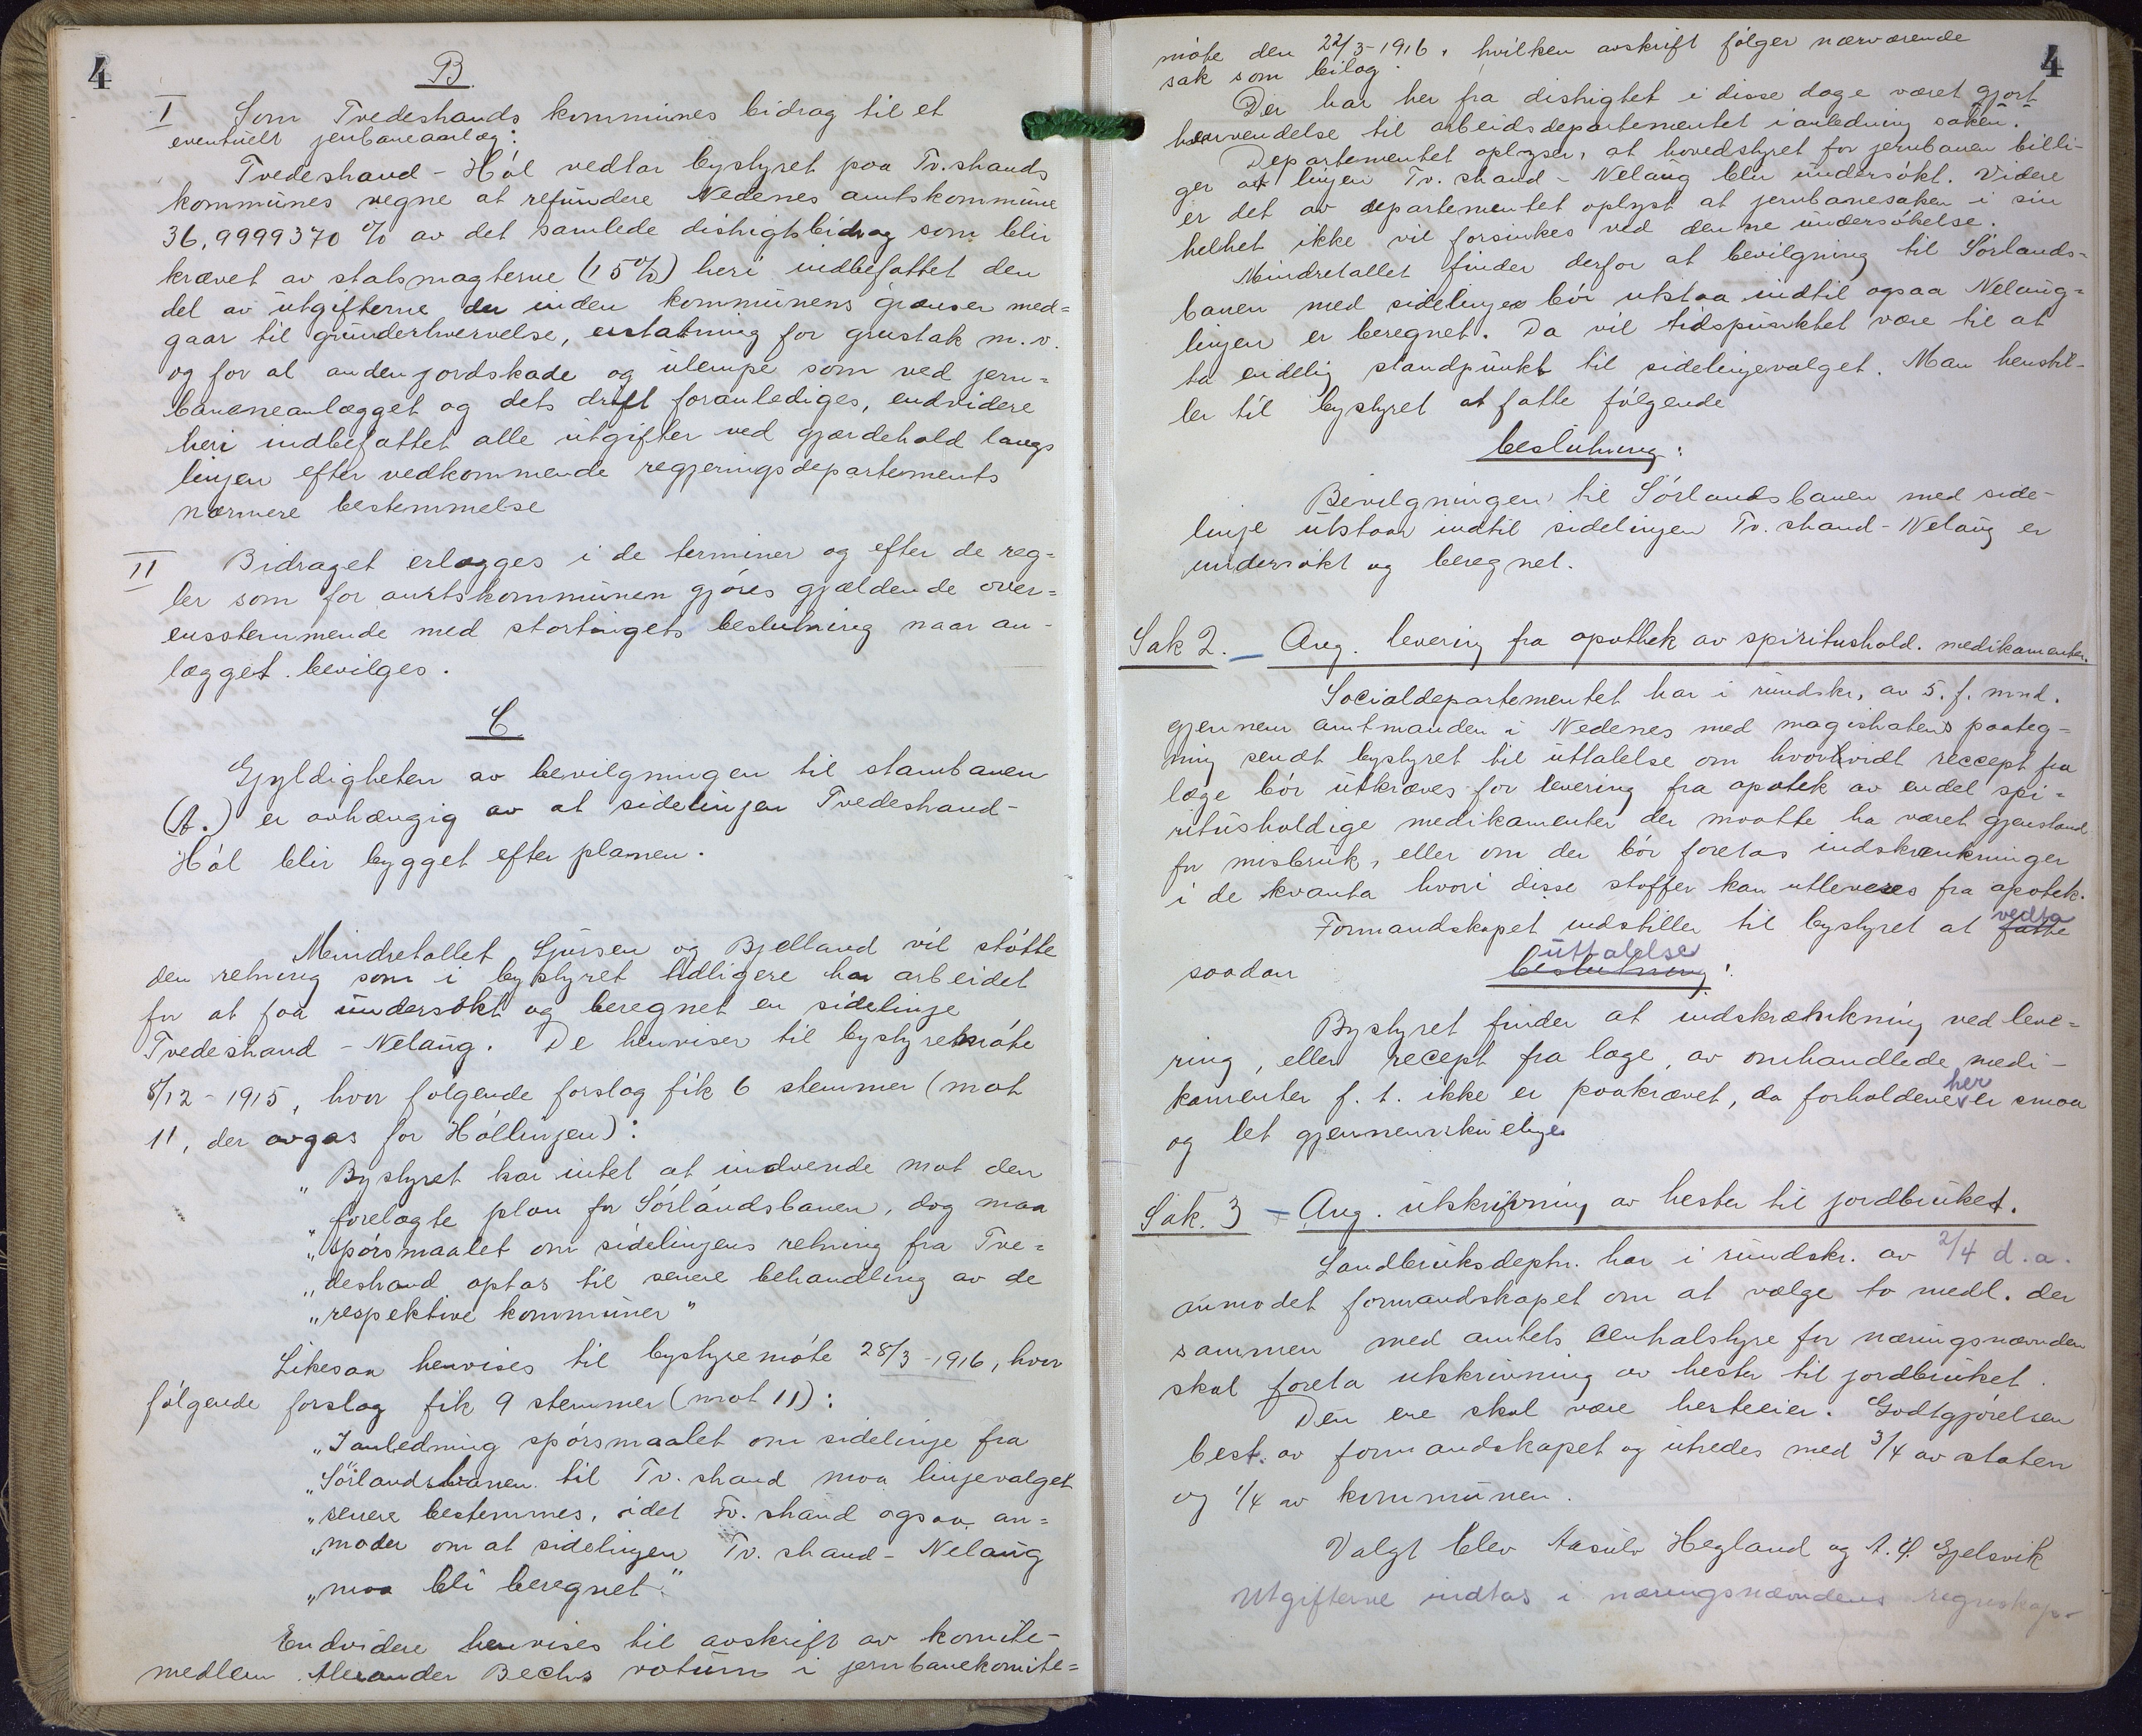 4
B
I Som Tvedestrands kommunes bidrag til et
eventuelt jernbaneanlæg:
Tvedestrand - Hól vedtar bystyret paa Tv.strands
kommunes vegne at refundere Nedenes amtskommune
36,9999370 % av det samlede distrigtsbidrag som blir
krævet av statsmagterne (15%) heri indbefattet den
del av utgifterne der inden kommunens grænser med=
gaar til grunderhvervelse, erstatning for grustak m.v.
og for al anden jordskade og ulempe som ved jern=
baneneanlægget og dets drift foranlediges, endvidere
heri indbefattet alle utgifter ved gjærdehold langs
linjen efter vedkommende regjeringsdepartements
nærmere bestemmelse
II Bidraget erlægges i de terminer og efter de reg=
ler som for amtskommunen gjöres gjældende over=
ensstemmende med stortingets beslutning naar an-
lægget bevilges.
C
Gyldigheten av bevilgningen til stambanen
(A.) er avhængig av at sidelinjen Tvedestrand-
Hól blir bygget efter planen.
Mindretallet Sjursen og Bjelland vil stótte
den retning som i bystyret tidligere har arbeidet
for at faa undersökt og beregnet en sidelinje
Tvedestrand - Nelaug. De henviser til bystyremöte
8/12 - 1915, hvor følgende forslag fik 6 stemmer (mot
11, der avgas for Hóllinjen):
"Bystyret har intet at indvende mot den
"forelagte plan for Sórlandsbanen, dog maa
"spörsmaalet om sidelinjens retning fra Tve=
"destrand optas til senere behandling av de
"respektive kommuner"
Likesaa henvises til bystyremóte 28/3 - 1916, hvor
fólgende forslag fik 9 stemmer (mot 11):
"I anledning spórsmaalet om sidelinje fra
"Sörlandsbanen til Tv.strand maa linjevalget
"senere bestemmes, idet Tv.strand ogsaa an=
"moder om at sidelinjen Tv.strand - Nelaug
"maa bli beregnet."
Endvidere henvises til avskrift av komite-
medlem Alexander Bechs votum i jernbanekomite=
4
móte den 22/3-1916, hvilken avskrift fólger nærværende
sak som bilag.
Der har her fra distrigtet i disse dage været gjort
henvendelse til arbeidsdepartementet i anledning saken.
Departementet oplyser, at hovedstyret for jernbanen billi-
ger at linjen Tv.strand - Nelaug blir undersókt. Videre
er det av departementet oplyst at jernbanesaken i sin
helhet ikke vil forsinkes ved denne undersókelse.
Mindretallet finder derfor at bevilgning til Sórlands=
banen med sidelinjer bór utstaa indtil ogsaa Nelaug=
linjen er beregnet. Da vil tidspunktet være til at
ta endelig standpunkt til sidelinjevalget. Man henstil-
ler til bystyret at fatte fólgende
beslutning:
Bevilgningen til Sórlandsbanen med side-
linje utstaar indtil sidelinjen Tv.strand - Nelaug er
undersókt og beregnet.
Sak 2. - Ang. levering fra apothek av spiritushold. medikamenter.
Socialdepartementet har i rundskr. av 5. f. mnd.
gjennem amtmanden i Nedenes med magistratens paateg-
ning sendt bystyret til uttalelse om hvorvidt reccept fra
læge bór utkræves for levering fra apotek av endel spi=
ritusholdige medikamenter der maatte ha været gjenstand
for misbruk, eller om der bór foretas indskrænkninger
i de kvanta hvori disse stoffer kan utleveres fra apotek.
Formandskapet indstiller til bystyret at fatte vedta
saadan beslutning uttalelse:
Bystyret finder at indskrænkning ved leve=
ring, eller recept fra læge, av omhandlede medi-
kamenter f. t. ikke er paakrævet, da forholdene her er smaa
og let gjennemskuelige
Sak. 3 - Ang. utskrivning av hester til jordbruket.
Landbruksdeptr. har i rundskr. av 2/4 d.a.
anmodet formandskapet om at vælge to medl. der
sammen med amtets centralstyre for næringsnævnden
skal foreta utskrivning av hester til jordbruket.
Den ene skal være hesteeier. Godtgjórelsen
best. av formandskapet og utredes med 3/4 av staten
og 1/4 av kommunen.
Valgt blev Aasulv Hegland og A. Gjelsvik
Utgifterne indtas i næringsnævndens regnskap.